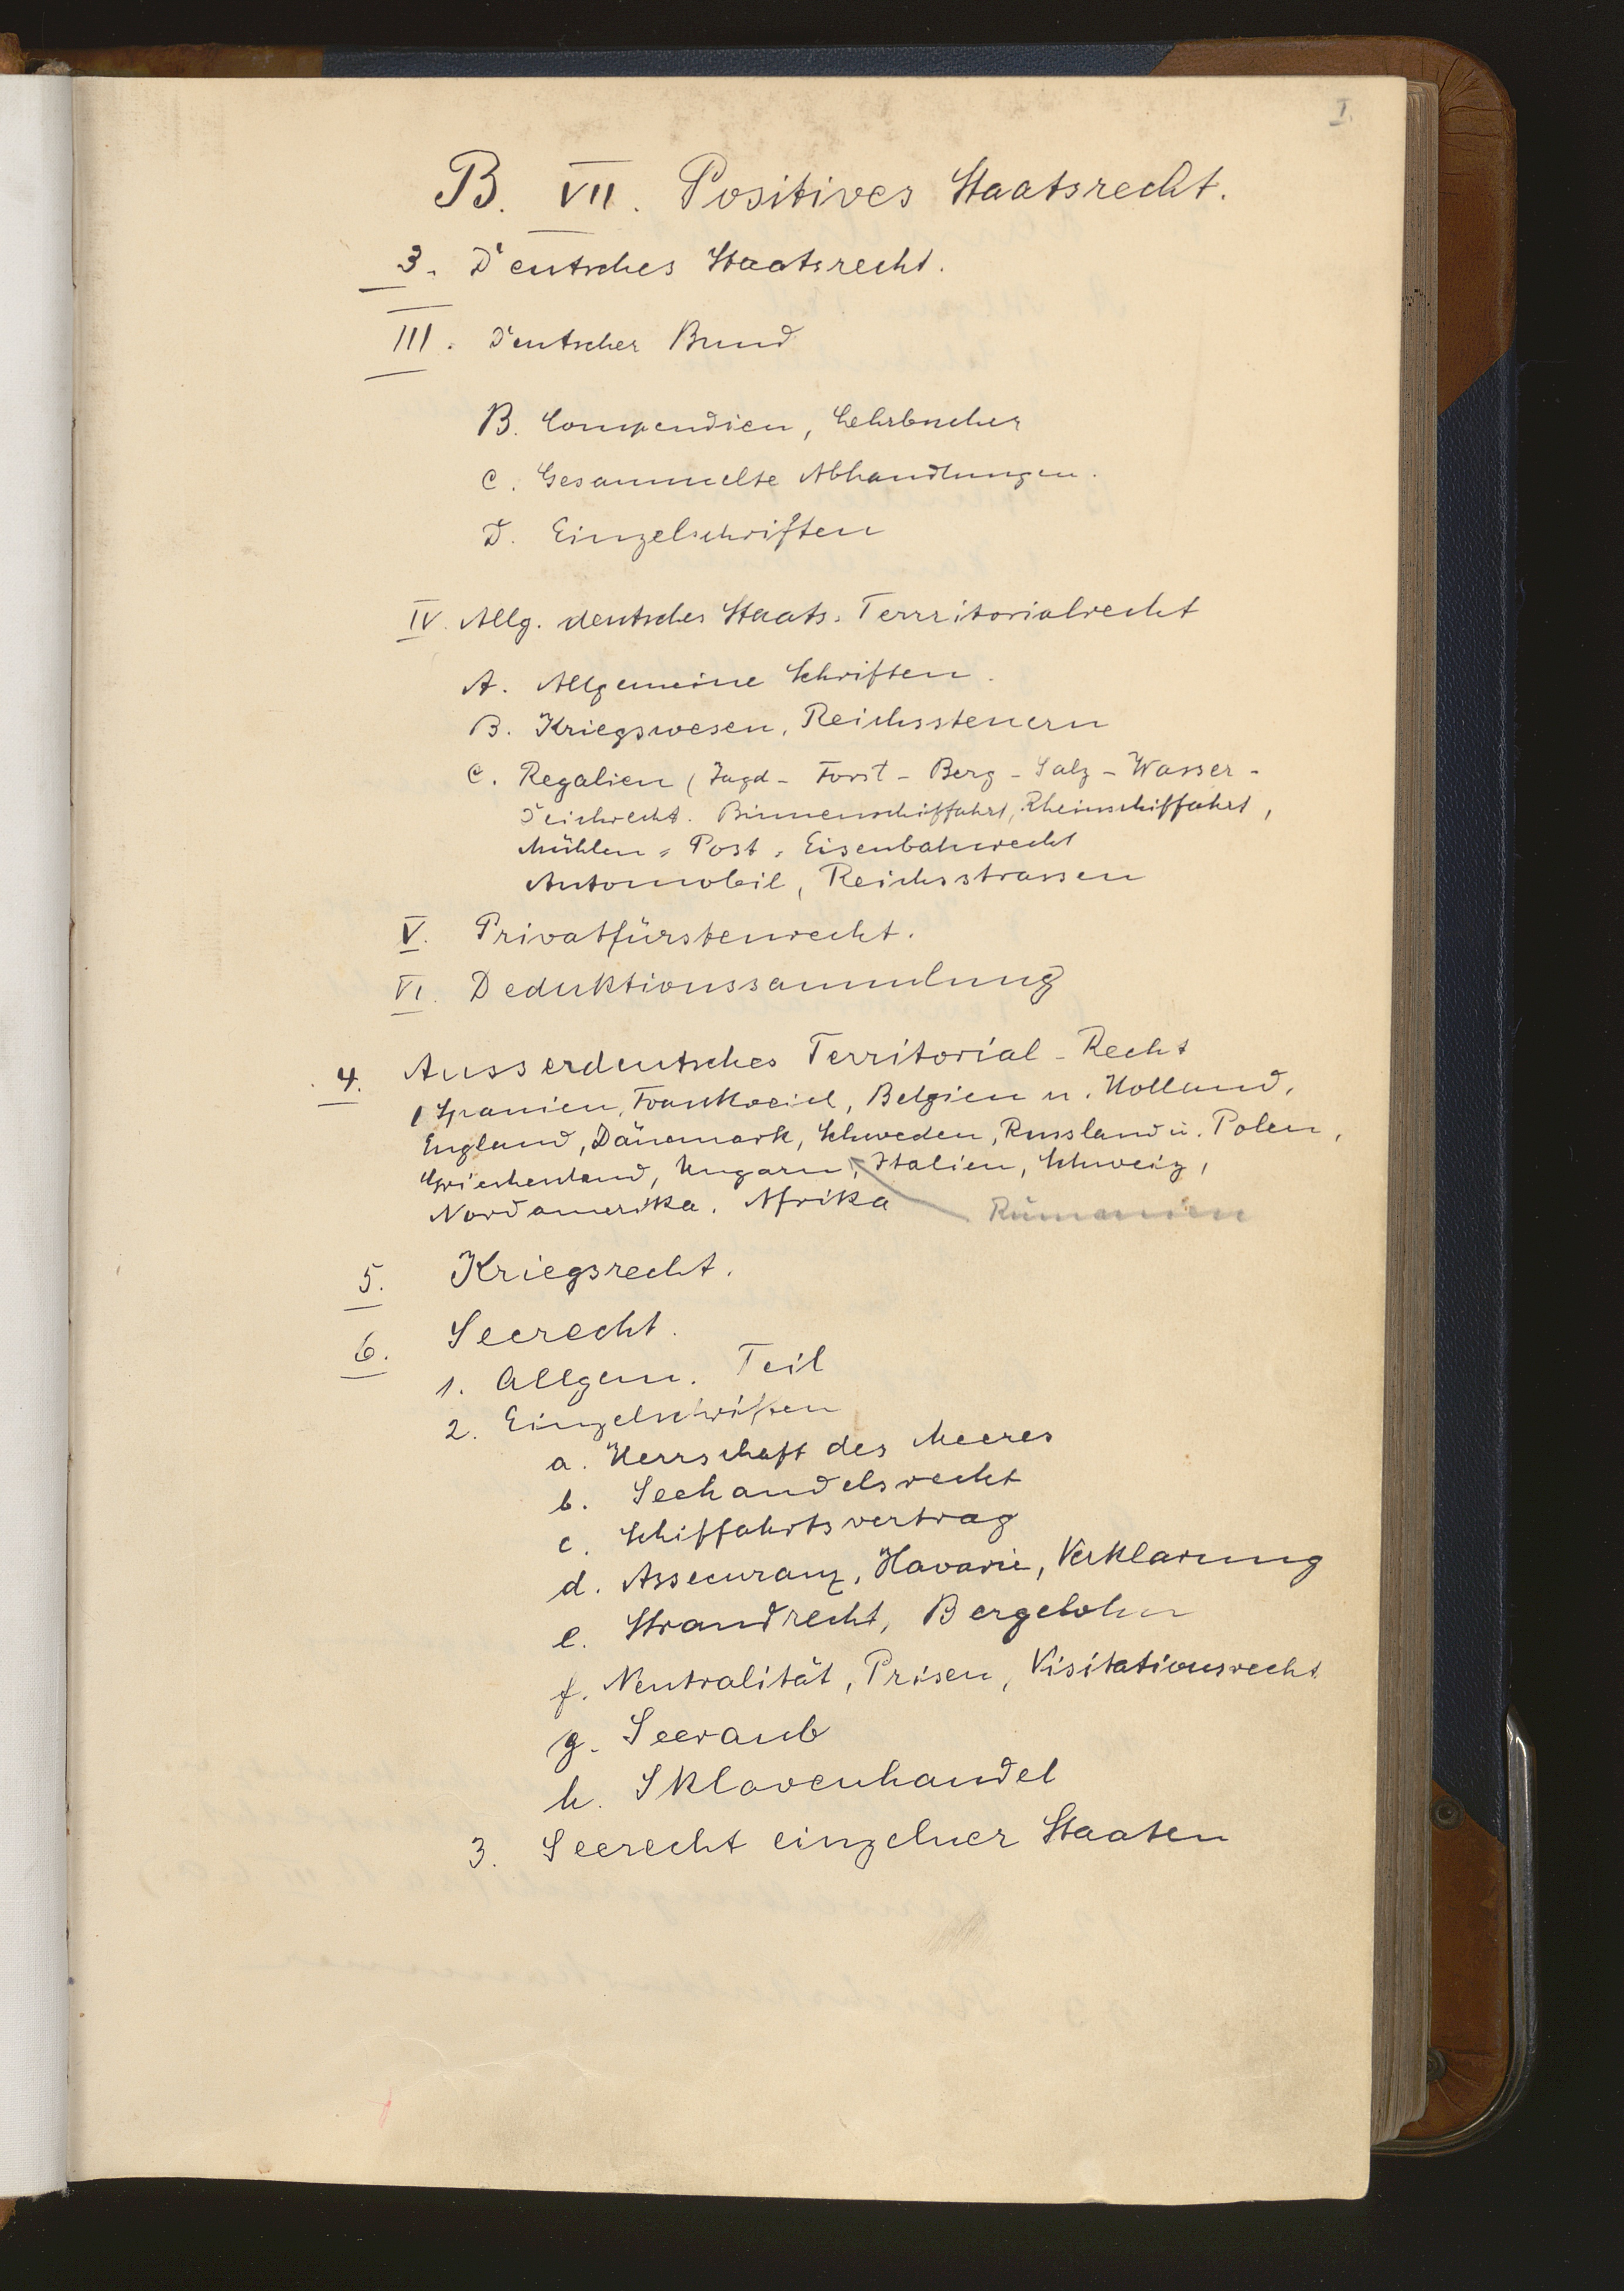 I.
B. VII. Positives Staatsrecht.
3. Deutsches Staatsrecht.
III. Deutscher Bund
B. Compendien, Lehrbucher
C. Gesammelte Abhandlungen.
D. Einzelschriften
IV. Allg. deutsches Staats- Terrritorialrecht
A. Allgemeine Schriften.
B. Kriegswesen, Reichssteuern
C. Regalien (Jagd- Forst- Berg- Salz- Wasser-
Deichrecht. Binnenschiffahrt, Rheinschiffahrt,
Mühlen- Post- Eisenbahnrecht
Automobil, Reichsstrassen
V. Privatfürstenrecht.
VI. Deduktionssammlung
4. Ausserdeutsches Territorial-Recht
(Spanien, Frankreich, Belgien u. Holland,
England, Dänemark, Schweden, Russland u. Polen,
Griechenland, Ungarn, Italien, Schweiz,
Nordamerika, Afrika Rumänien
5. Kriegsrecht.
6. Seerecht.
1. Allgem. Teil
2. Einzelschriften
a. Herrschaft des Meeres
b. Seehandelsrecht
c. Schiffahrtsvertrag
d. Assecuranz, Havarie, Verklarung
e. Strandrecht, Bergelohn
f. Neutralität, Prisen, Visitationsrecht
g. Seeraub
h. Sklavenhandel
3. Seerecht einzelner Staaten